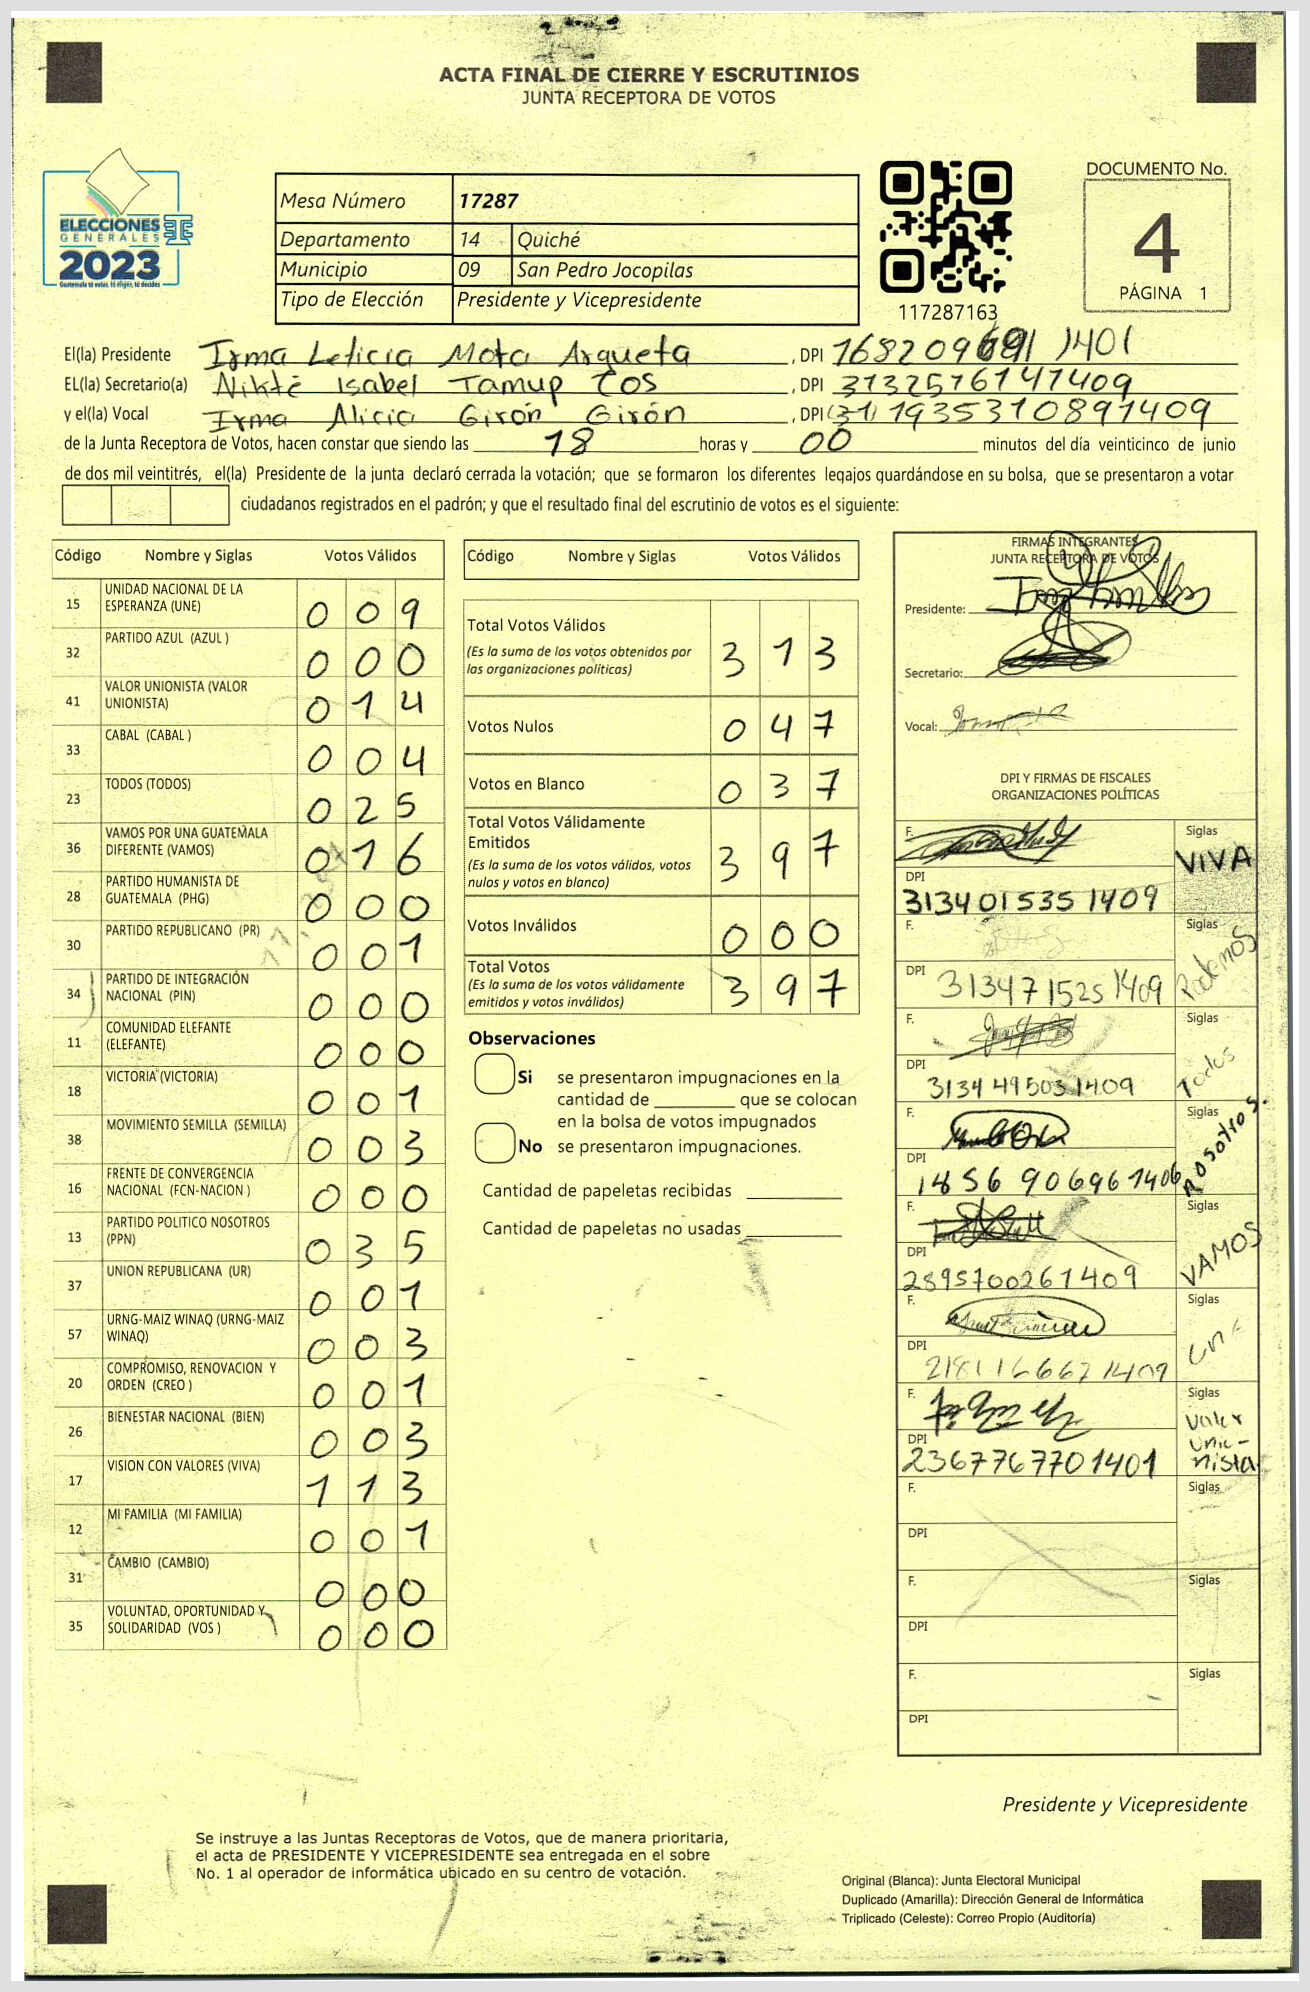 ACTA FINAL DE CIERRE Y ESCRUTINIOS
JUNTA RECEPTORA DE VOTOS
ELECCIONES
GENERALES
2023
Guatemala tú votas, tú eliges, tú decides
Mesa Número 17287
Departamento 14 Quiché
Municipio 09 San Pedro Jocopilas
Tipo de Elección Presidente y Vicepresidente
117287163
DOCUMENTO No.
4
PÁGINA 1
El(la) Presidente Irma Leticia Mota Argueta , DPI 1401
EL(la) Secretario(a) Nikté Isabel Tamup Cos , DPI 3132516141409
y el(la) Vocal Irma Alicia Girón Girón , DPI (31) 1935310891409
de la Junta Receptora de Votos, hacen constar que siendo las 18 horas y 00 minutos del día veinticinco de junio
de dos mil veintitrés, el(la) Presidente de la junta declaró cerrada la votación; que se formaron los diferentes legajos guardándose en su bolsa, que se presentaron a votar
ciudadanos registrados en el padrón; y que el resultado final del escrutinio de votos es el siguiente:
Código Nombre y Siglas Votos Válidos
15 UNIDAD NACIONAL DE LA ESPERANZA (UNE) 0 0 9
32 PARTIDO AZUL (AZUL ) 0 0 0
41 VALOR UNIONISTA (VALOR UNIONISTA) 0 1 4
33 CABAL (CABAL ) 0 0 4
23 TODOS (TODOS) 0 2 5
36 VAMOS POR UNA GUATEMALA DIFERENTE (VAMOS) 0 1 6
28 PARTIDO HUMANISTA DE GUATEMALA (PHG) 0 0 0
30 PARTIDO REPUBLICANO (PR) 0 0 1
34 PARTIDO DE INTEGRACIÓN NACIONAL (PIN) 0 0 0
11 COMUNIDAD ELEFANTE (ELEFANTE) 0 0 0
18 VICTORIA (VICTORIA) 0 0 1
38 MOVIMIENTO SEMILLA (SEMILLA) 0 0 3
16 FRENTE DE CONVERGENCIA NACIONAL (FCN-NACION ) 0 0 0
13 PARTIDO POLITICO NOSOTROS (PPN) 0 3 5
37 UNION REPUBLICANA (UR) 0 0 1
57 URNG-MAIZ WINAQ (URNG-MAIZ WINAQ) 0 0 3
20 COMPROMISO, RENOVACION Y ORDEN (CREO ) 0 0 1
26 BIENESTAR NACIONAL (BIEN) 0 0 3
17 VISION CON VALORES (VIVA) 1 1 3
12 MI FAMILIA (MI FAMILIA) 0 0 1
31 CAMBIO (CAMBIO) 0 0 0
35 VOLUNTAD, OPORTUNIDAD Y SOLIDARIDAD (VOS ) 0 0 0
Código Nombre y Siglas Votos Válidos
Total Votos Válidos 3 1 3
(Es la suma de los votos obtenidos por
las organizaciones políticas)
Votos Nulos 0 4 7
Votos en Blanco 0 3 7
Total Votos Válidamente
Emitidos 3 9 7
(Es la suma de los votos válidos, votos
nulos y votos en blanco)
Votos Inválidos 0 0 0
Total Votos 3 9 7
(Es la suma de los votos válidamente
emitidos y votos inválidos)
Observaciones
Si se presentaron impugnaciones en la
cantidad de ________ que se colocan
en la bolsa de votos impugnados
No se presentaron impugnaciones.
Cantidad de papeletas recibidas
Cantidad de papeletas no usadas
FIRMAS INTEGRANTES
JUNTA RECEPTORA DE VOTOS
Presidente:
Secretario:
Vocal:
DPI Y FIRMAS DE FISCALES
ORGANIZACIONES POLÍTICAS
F. Siglas VIVA
DPI 313401535 1409
F. Siglas Podemos
DPI 31347 1525 1409
F. Siglas Todos
DPI 3134 49503 1409
F. Siglas Nosotros.
DPI 1856 90696 1406
F. Siglas VAMOS
DPI 2895700261409
F. Siglas une
DPI 218116667 1409
F. Siglas Valor Unionista
DPI 2367767701401
F. Siglas
DPI
F. Siglas
DPI
F. Siglas
DPI
Presidente y Vicepresidente
Se instruye a las Juntas Receptoras de Votos, que de manera prioritaria,
el acta de PRESIDENTE Y VICEPRESIDENTE sea entregada en el sobre
No. 1 al operador de informática ubicado en su centro de votación.
Original (Blanca): Junta Electoral Municipal
Duplicado (Amarilla): Dirección General de Informática
Triplicado (Celeste): Correo Propio (Auditoría)